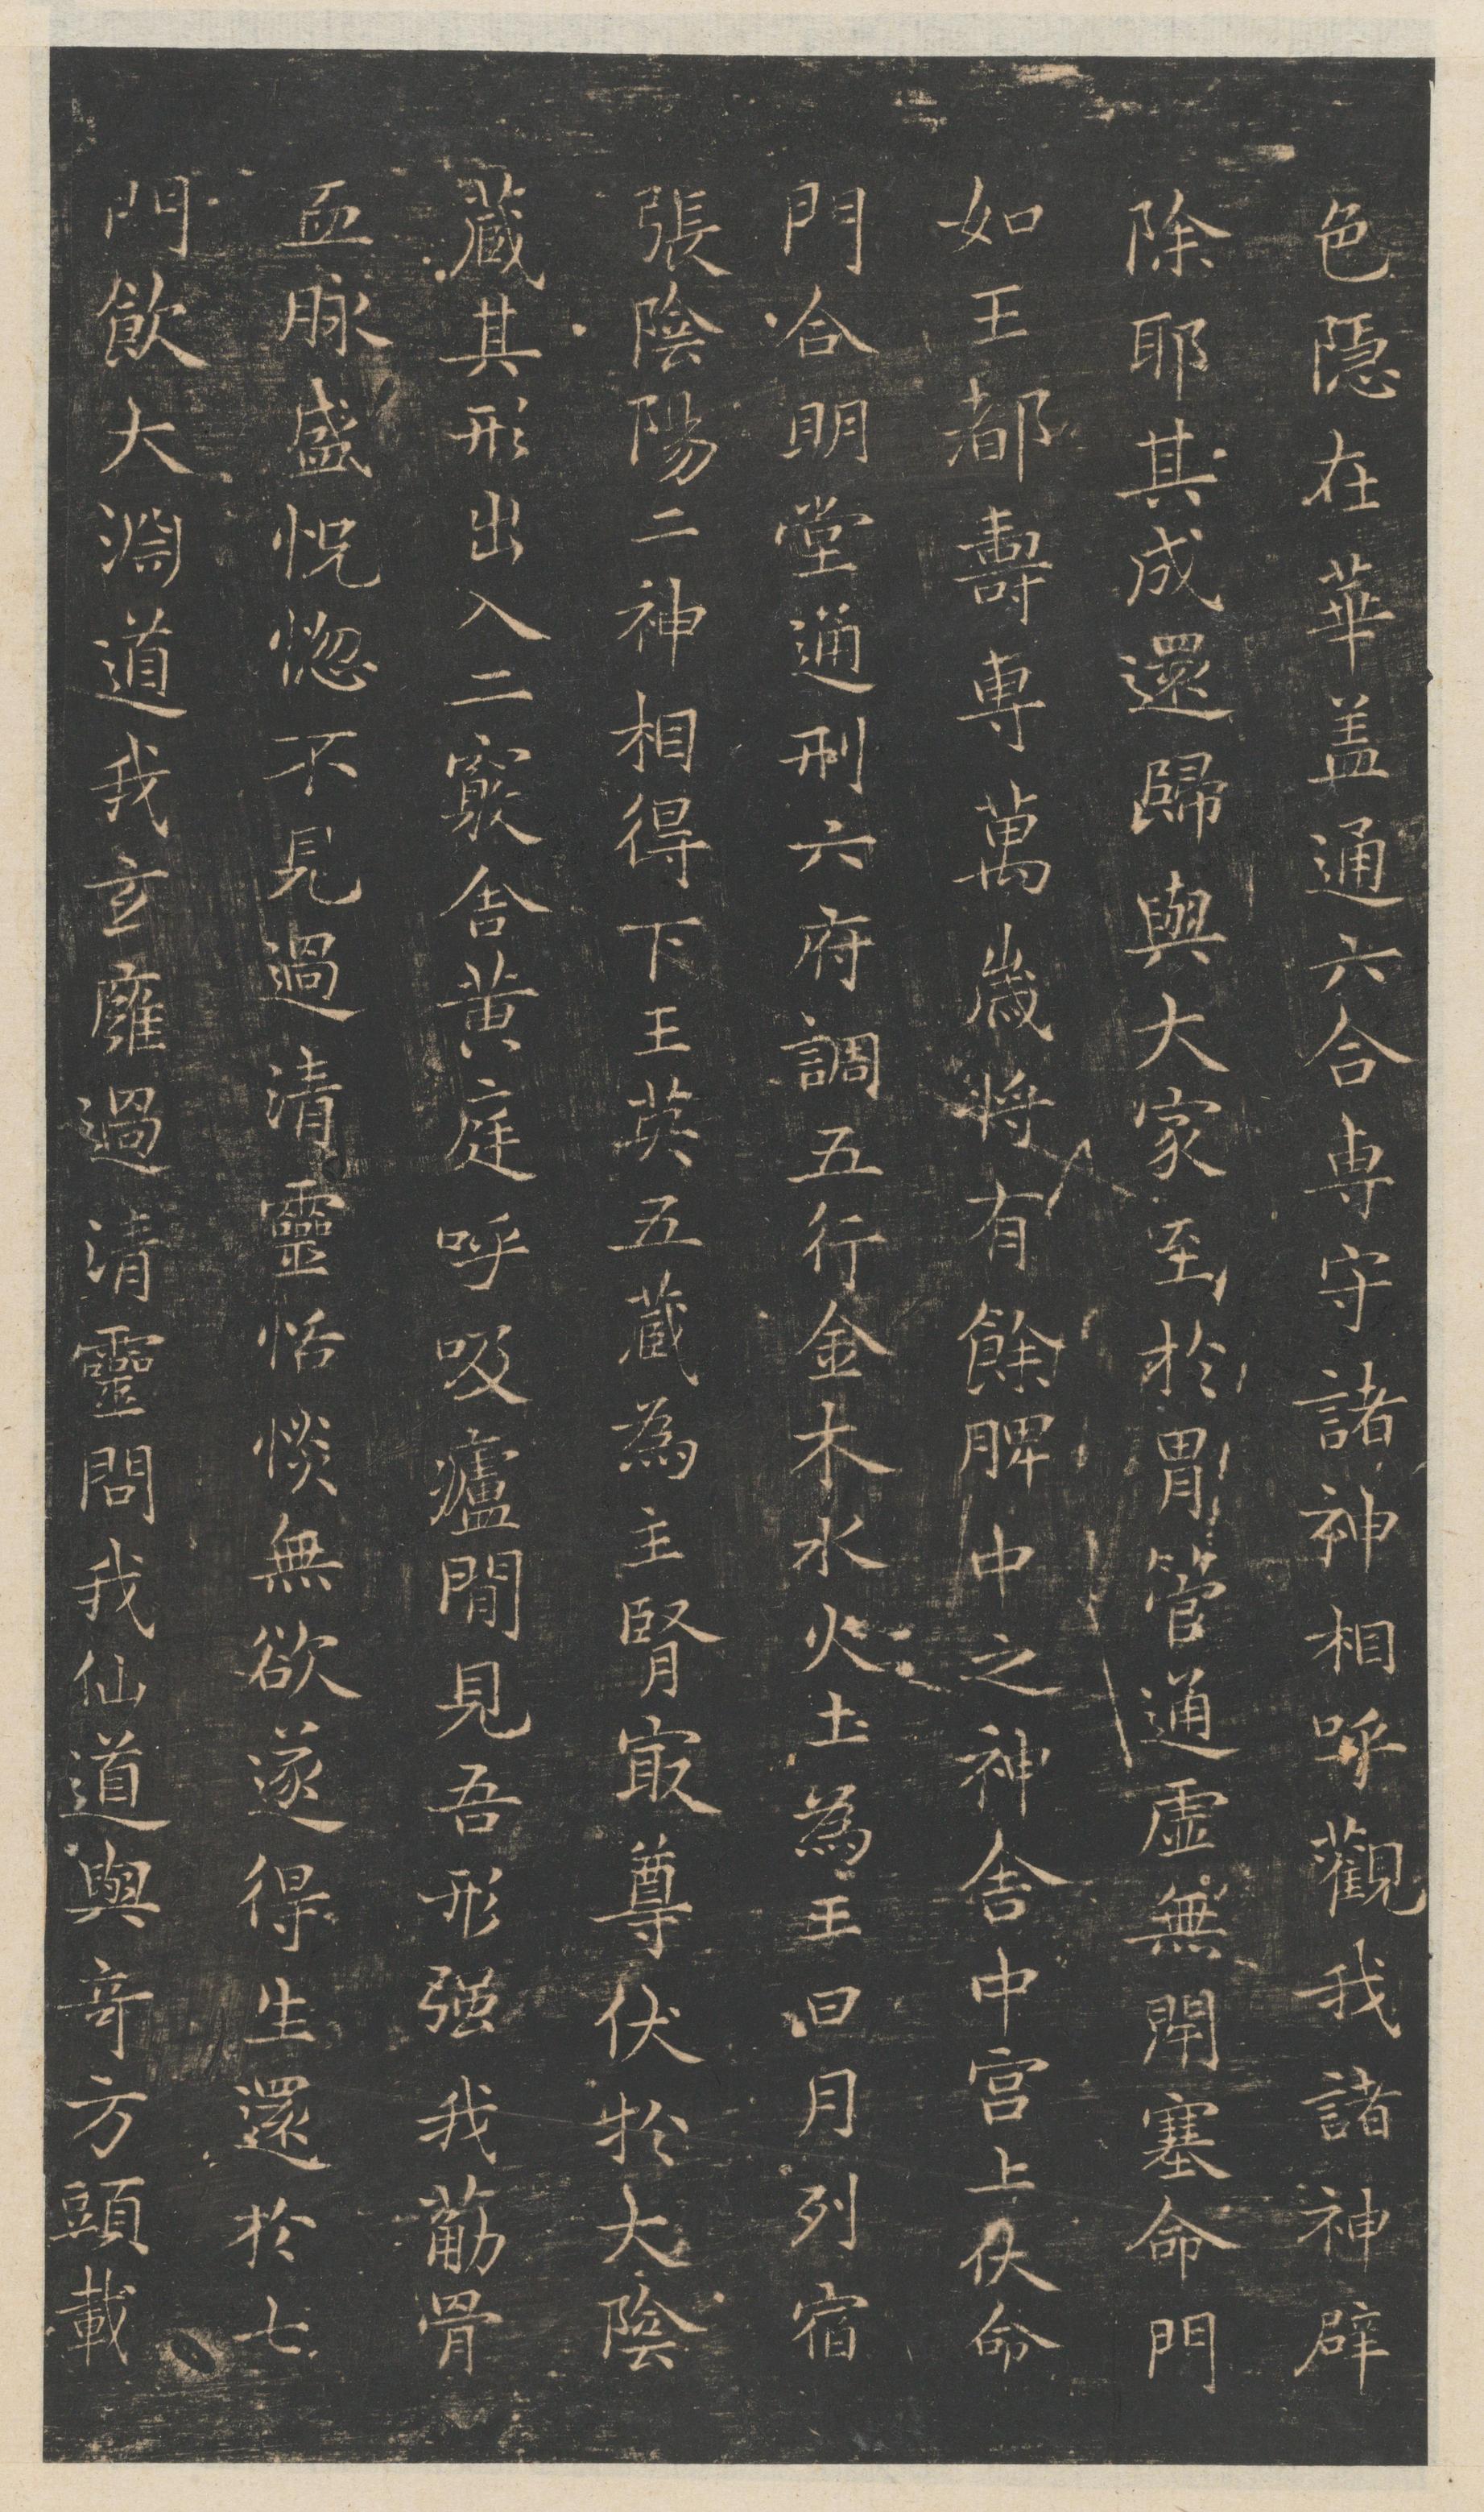 色隱在華盖通六合専守諸神相呼觀我諸神辟
除耶其成還歸與大家至於胃管通虛無閉塞命門
如玉都壽専萬歲将有餘脾中之神舍中宮上伏命
門合明堂通利六府調五行金木水火土為王日月列宿
張陰陽二神相得下玉英五蔵為主腎冣尊伏於大陰
蔵其形出入二竅舍黄庭呼吸廬間見吾形强我葋骨
血脉盛怳惚不見過清靈恬惔無欲遂得生還於七
門飲大淵道我玄廱過清靈問我仙道與奇方頭載